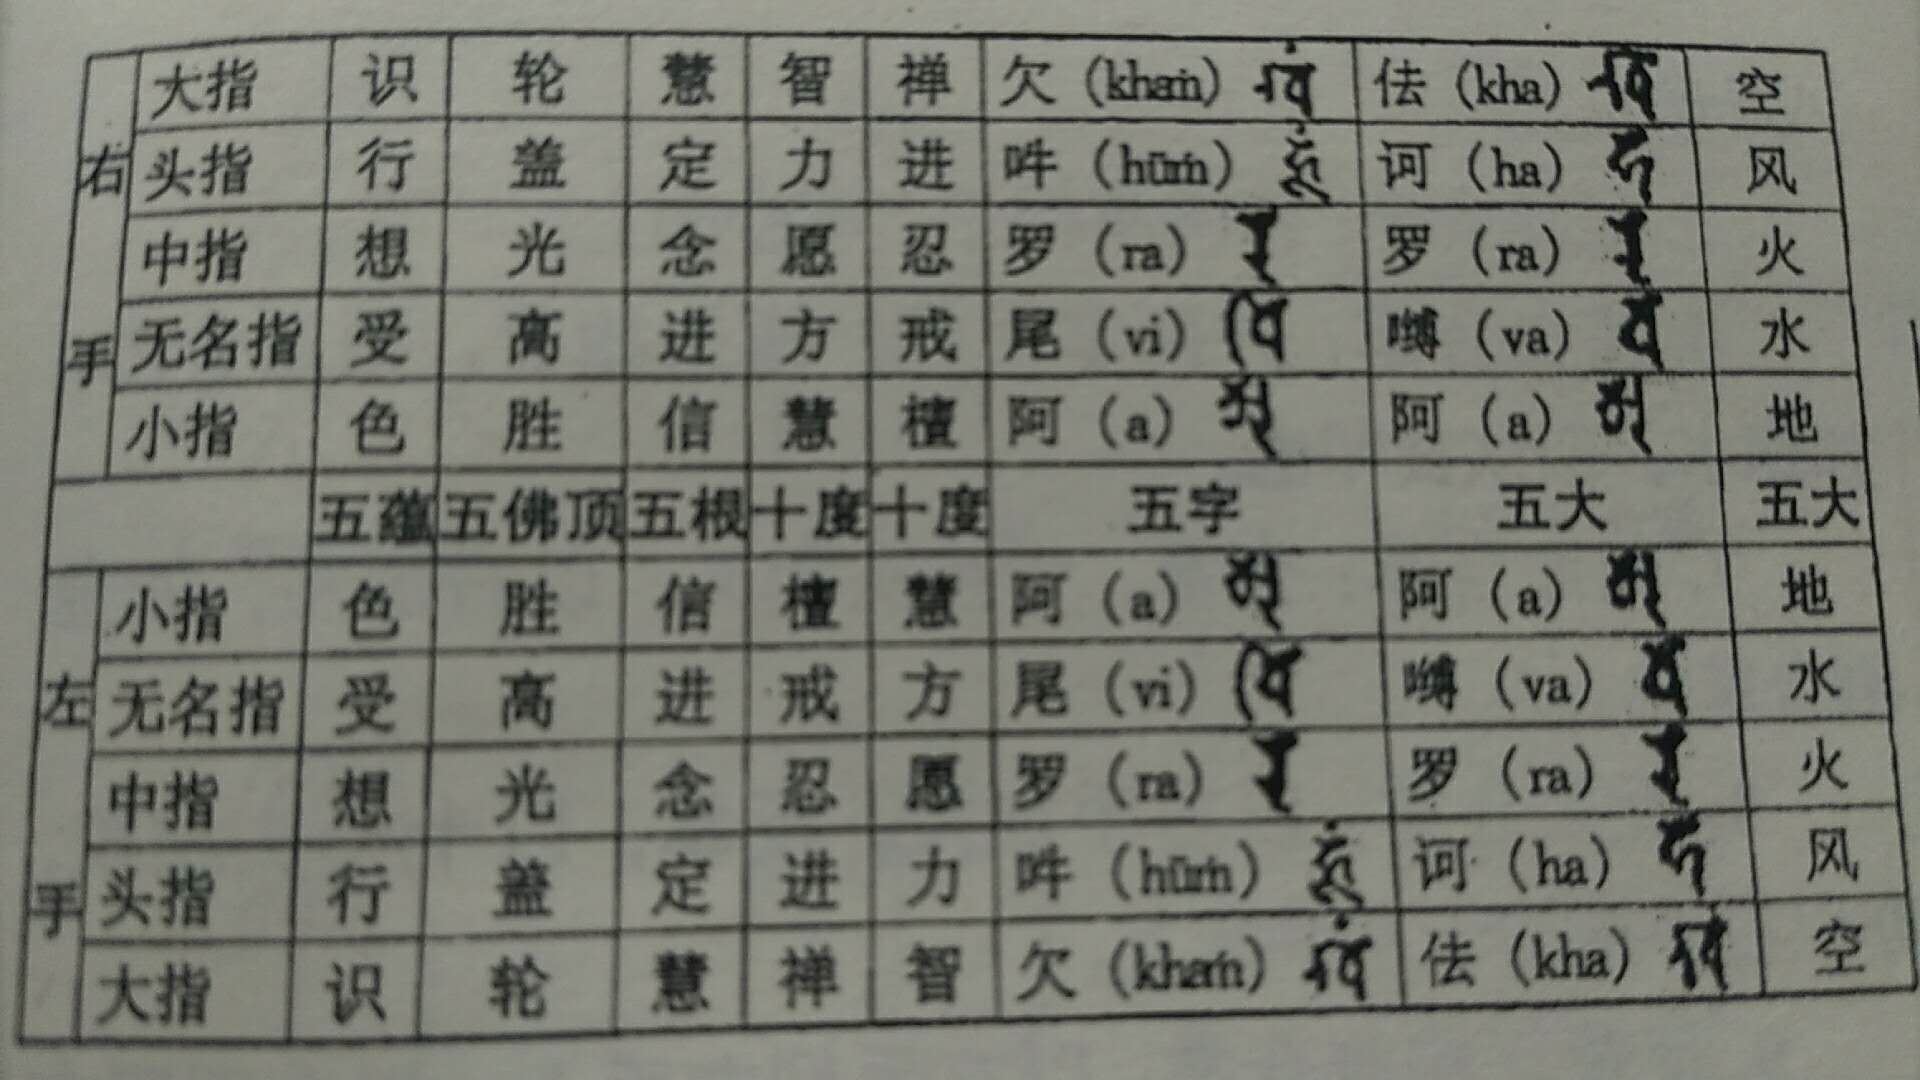 右手 大指 识 轮 慧 智 禅 欠（khaṁ） 佉（kha） 空
头指 行 盖 定 力 进 吽（hūṁ） 诃（ha） 风
中指 想 光 念 愿 忍 罗（ra） 罗（ra） 火
无名指 受 高 进 方 戒 尾（vi） 嚩（va） 水
小指 色 胜 信 慧 檀 阿（a） 阿（a） 地
五蕴 五佛顶 五根 十度 十度 五字 五大 五大
左手 小指 色 胜 信 檀 慧 阿（a） 阿（a） 地
无名指 受 高 进 戒 方 尾（vi） 嚩（va） 水
中指 想 光 念 忍 愿 罗（ra） 罗（ra） 火
头指 行 盖 定 进 力 吽（hūṁ） 诃（ha） 风
大指 识 轮 慧 禅 智 欠（khaṁ） 佉（kha） 空